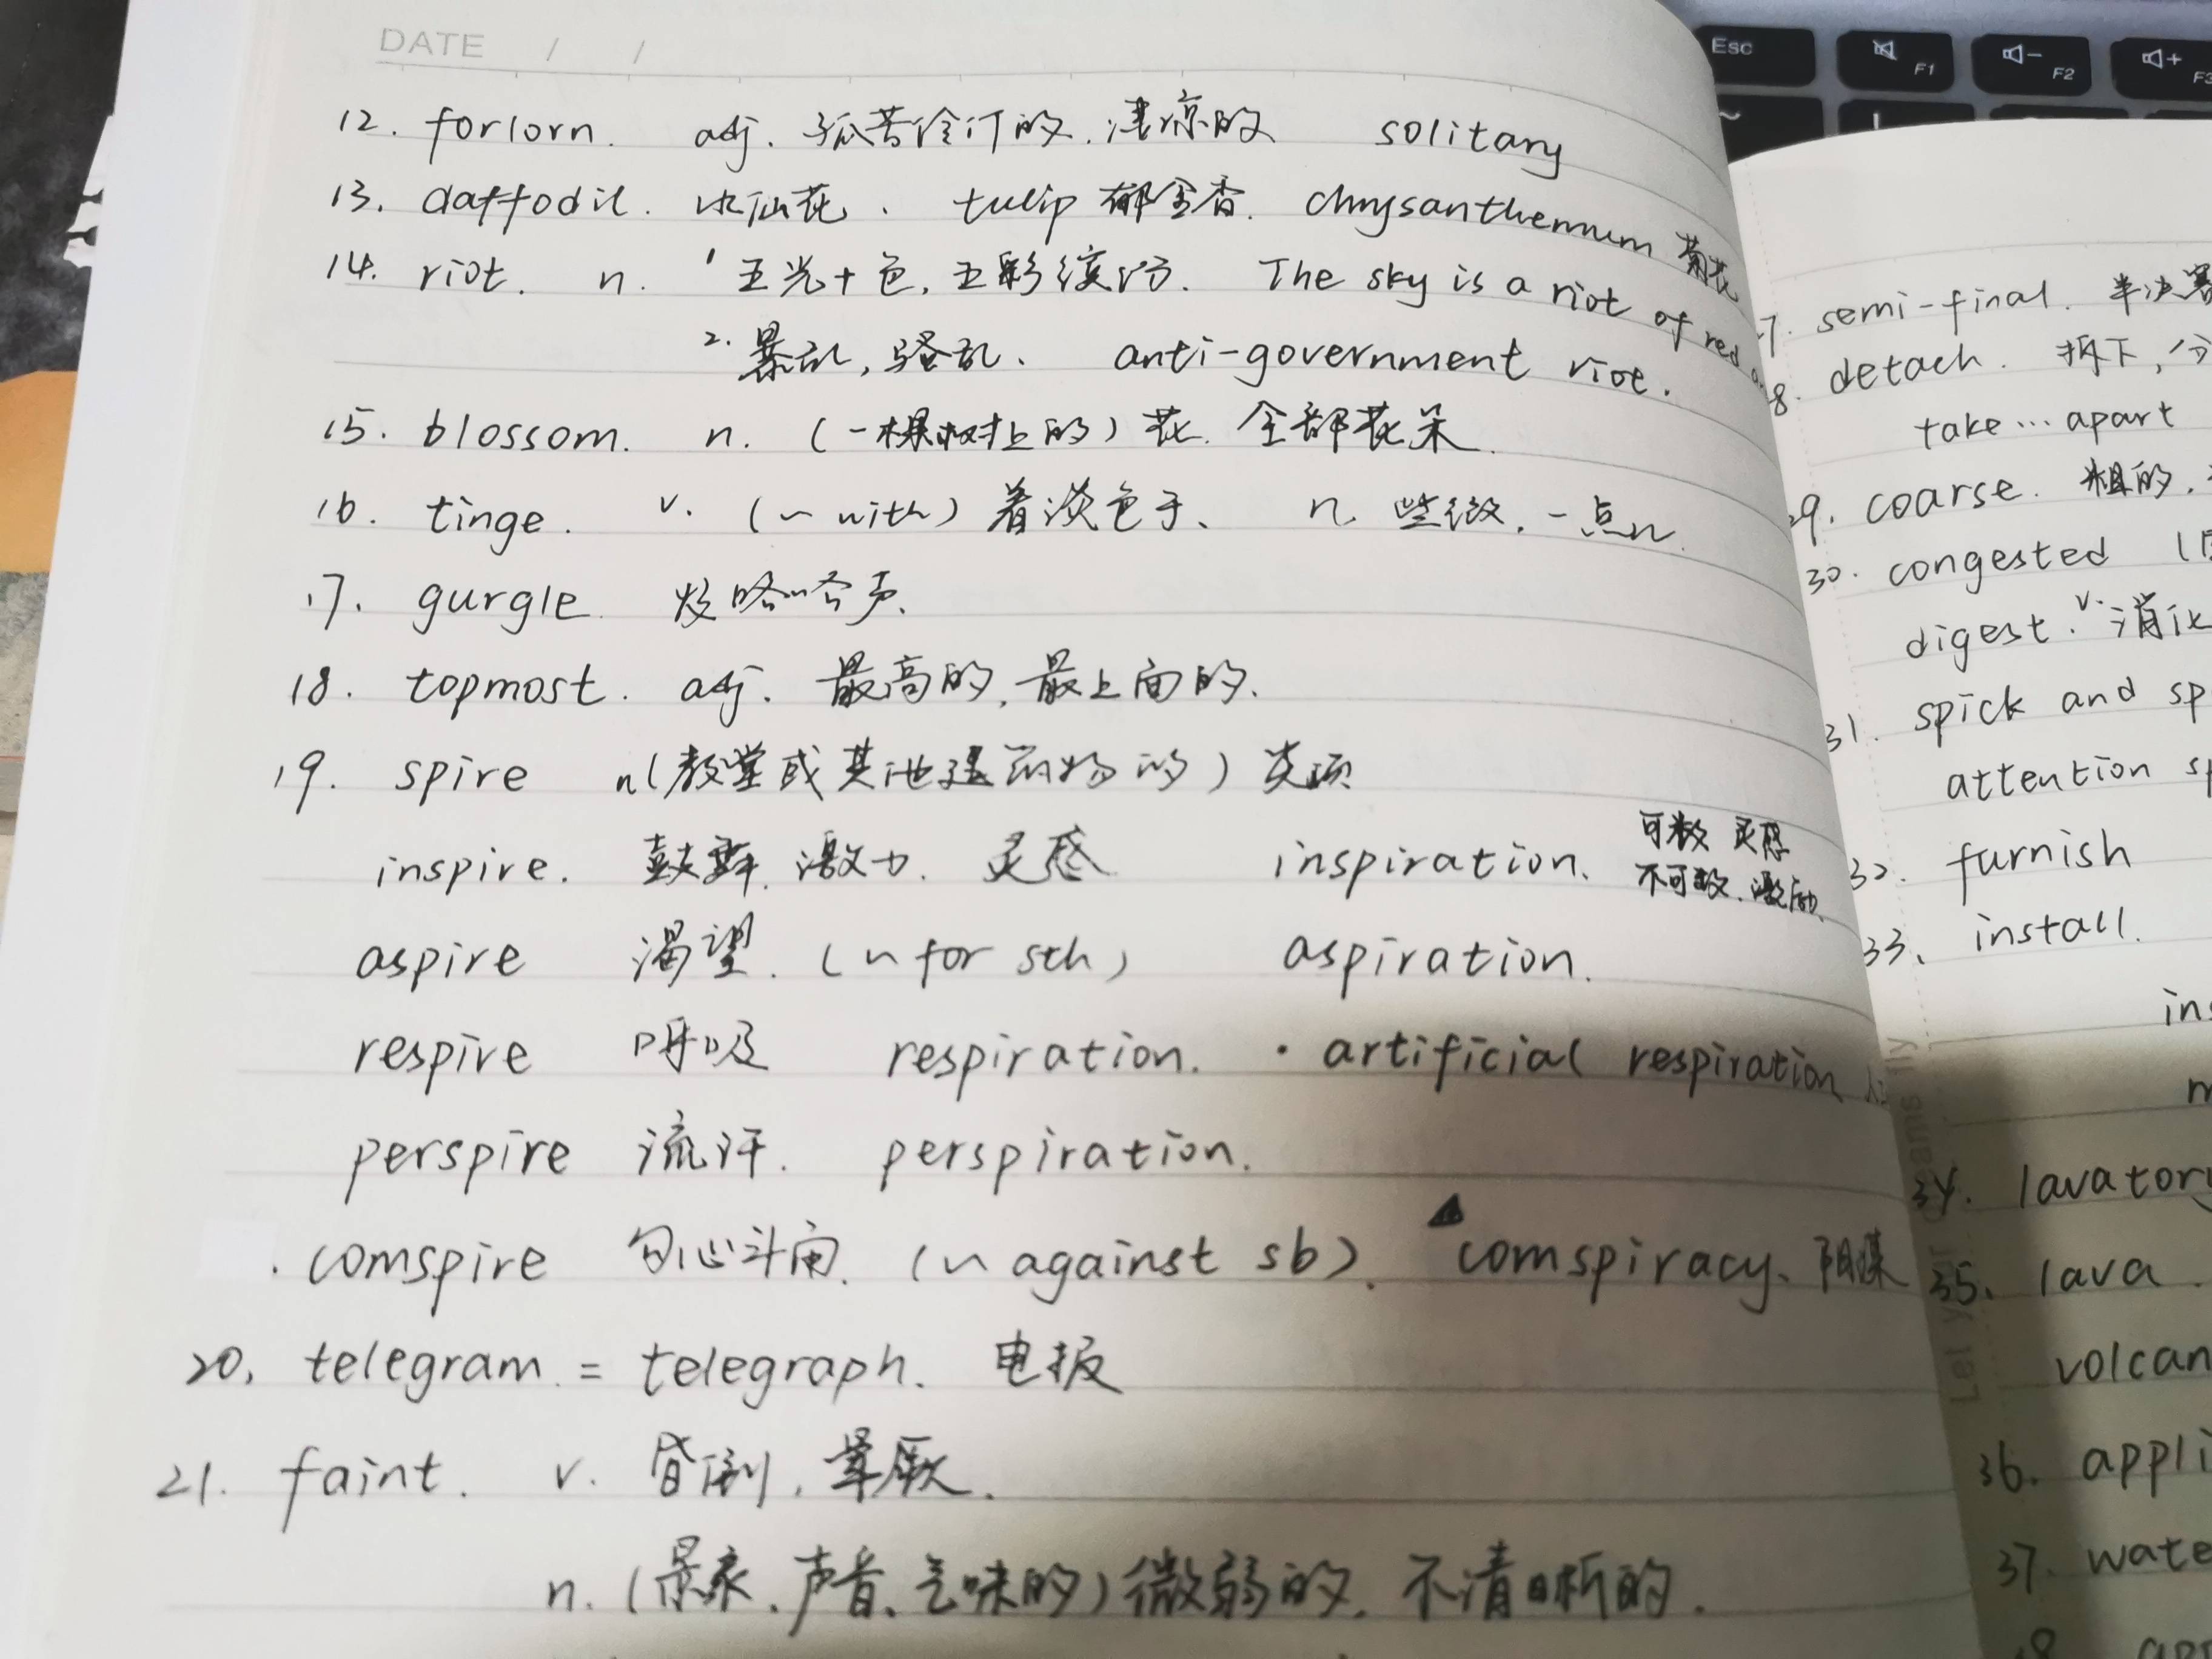 DATE / /
12. forlorn. adj. 孤苦伶仃的. 凄凉的 solitary
13. daffodil. 水仙花. tulip 郁金香. chrysanthemum 菊花
14. riot. n. 1 五光十色, 五彩缤纷. The sky is a riot of red
2. 暴乱, 骚乱. anti-government riot.
15. blossom. n. (一棵树上的) 花. 全部花朵.
16. tinge. v. (~ with) 着淡色于、 n. 些微, 一点儿.
17. gurgle. 发咯咯声.
18. topmost. adj. 最高的, 最上面的.
19. spire n (教堂或其他建筑物的) 尖顶
inspire. 鼓舞. 激力. 灵感 inspiration. 可数 灵感
不可数. 激励.
aspire 渴望. (~ for sth) aspiration.
respire 呼吸 respiration. · artificial respiration
perspire 流汗. perspiration.
. comspire 勾心斗角. (~ against sb). ▲ comspiracy. 阴谋
20. telegram. = telegraph. 电报
21. faint. v. 昏倒, 晕厥.
n. (景象. 声音. 气味的) 微弱的. 不清晰的.
7. semi-final. 半决赛
8. detach. 拆下, 分
take... apart
29. coarse. 粗的,
30. congested
digest. v. 消化
31. spick and sp
attention sp
32. furnish
33. install.
ins
34. lavatory
35. lava.
volcan
36. appli
37. wate
38 app
Esc F1 F2 F3